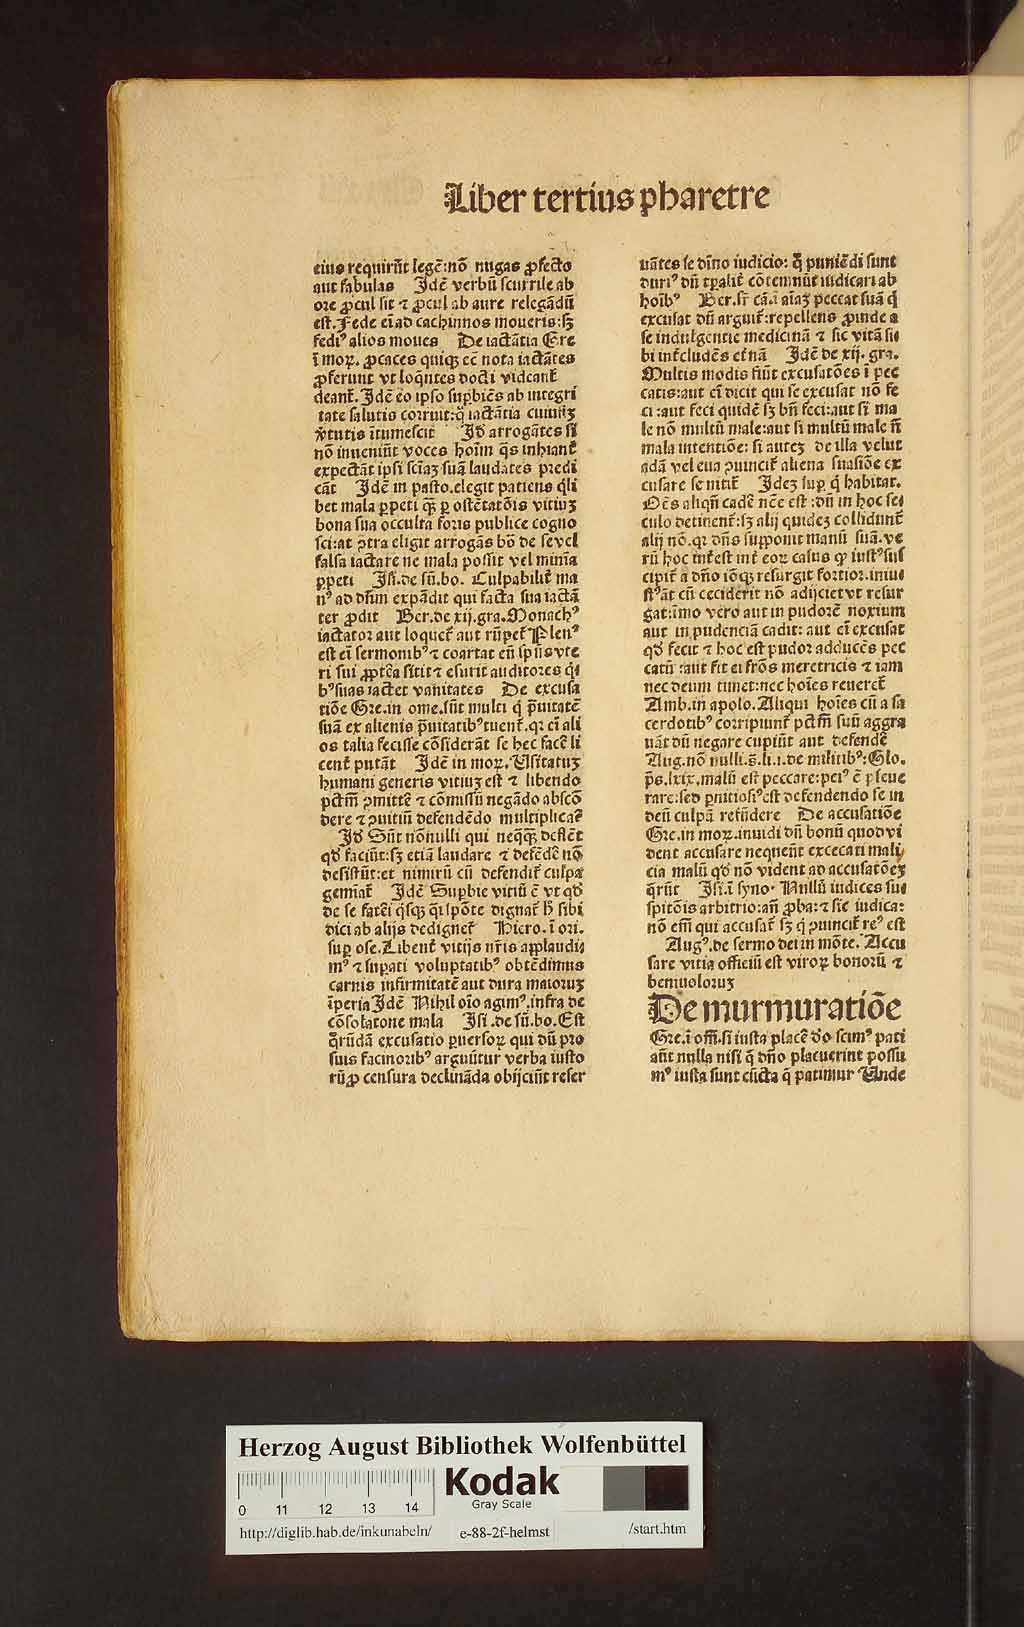 Liber tertius pharetre
eius requirūt legē:nō nugas ꝓfecto
aut fabulas Jdē verbū scurrile ab
ore ꝓcul sit ⁊ ꝓcul ab aure relegādū
est. Fede ei ad cachinnos moueris:sꝫ
fediꝰ alios moues De iactātia Gre
ī moꝝ. ꝓcaces quiqꝫ eē nota iactātes
ꝓferunt vt loqntes docti videant̄
deant̄. Jdē eo ipso supbiēs ab integri
tate salutis corruit:q̄ iactātia cuiusꝫ
v̄tutis ītumescit Jd̄ arrogātes si
nō inueniūt voces hoīm q̄s inhiant
expectāt ipsi sciaꝫ suā laudātes predi
cāt Jdē in pasto.elegit patiens qͥli
bet mala ꝑpeti qꝫ̄ ꝑ ostētatōis vitiuꝫ
bona sua occulta foris publice cogno
sci:at ꝯtra eligit arrogās bō de se vel
falsa iactare ne mala possit vel mīma
ꝑpeti Jsi.de sū.bo. Culpabilit̄ ma
nꝰ ad dn̄m expādit qui facta sua iactā
ter ꝓdit Ber.de xij.gra.Monachꝰ
iactator aut loquet̄ aut rūpet̄ Plenꝰ
est ei sermonibꝰ ⁊ coartat eū spūs vte
ri sui ꝓptea sitit ⁊ esurit auditores qͥ
bꝰ suas iactet vanitates De excusa
tiōe Gre.in ome.sūt multi q̄ p̄uitatē
suā ex alienis p̄uitatibꝰ tuent̄.qꝛ ei ali
os talia fecisse cōsiderāt se hec facē li
cent̄ putāt Jdē in moꝝ. Usitatuꝫ
humani generis vitiuꝫ est ⁊ libendo
pctm̄ ꝯmittē ⁊ cōmissū negādo abscō
dere ⁊ ꝯuitiū defendēdo multiplicaē
Jd̄ Sūt nōnulli qui neqꝫ deflēt
qd̄ faciūt:sꝫ etiā laudare ⁊ defēdē nō
desistūt:et nimirū cū defendit̄ culpa
gemīat̄ Jdē Supbie vitiū ē vt qd̄
de se fatei qͥsqꝫ qͥ spōte dignat̄ h̄ sibi
dici ab alijs dedignet̄ Hiero.ī ori.
suꝑ ose.Libent̄ vitijs nr̄is applaudi
mꝰ ⁊ suꝑati voluptatibꝰ obtēdimus
carnis infirmitatē aut dura maioruꝫ
īperia Jdē Nihil oīo agimꝰ.infra de
cōsolatione mala Jsi.de sū.bo.Est
q̄rūdā excusatio ꝑuersoꝝ qui dū pro
suis facinoribꝰ arguūtur verba iusto
rū ꝓ censura declināda obijciūt refer
uātes se dīno iudicio: q̄ puniēdi sunt
duriꝰ dū tꝑalit̄ cōtemnūt iudicari ab
hoībꝰ Ber.sr̄ cā.ī aīaꝫ peccat suā q̄
excusat dū arguit̄:repellens ꝓinde a
se indulgentie medicinā ⁊ sic vitā si
bi int̄cludēs et̄nā Jdē de xij. gra.
Multis modis fiūt excusatōes ī pec
catis:aut ei dicit qui se excusat nō fe
ci :aut feci quidē sꝫ bn̄ feci:aut si ma
le nō multū male:aut si multū male n̄
mala intentiōe: si autez de illa velut
adā vel eua ꝯuincit̄ aliena suasiōe ex
cusare se nitit̄ Jdeꝫ suꝑ q̄ habitat.
Oēs aliqn̄ cadē n̄ce est :dū in hoc se
culo detinent̄:sꝫ alij quidez collidunt̄
alij nō.qꝛ dn̄s supponit manū suā.ve
rū hoc int̄est int̄ eoꝝ casus ꝙ iustꝰ sus
cipit̄ a dn̄o ioqꝫ resurgit fortior.iniu
stꝰ aūt cū ceciderit nō adijciet vt resur
gat:īmo vero aut in pudorē noxium
aut in pudenciā cadit: aut ei excusat
qd̄ fecit ⁊ hoc est pudor adducēs pec
catū :aut fit ei frōs meretricis ⁊ iam
nec deum timet:nec hoīes reueret̄
Amb.in apolo.Aliqui hoīes cū a sa
cerdotibꝰ corripiunt̄ pctm̄ suū aggra
uāt dū negare cupiūt aut defendē
Aug.nō nulli.q̄.li.i.de militibꝰ:Glo.
ps̄.lxix.malū est peccare:peiꝰ ē ꝑseue
rare:sed ꝑnitiosiꝰ est defendendo se in
deū culpā refūdere De accusatiōe
Gre.in moꝝ.inuidi dū bonū quod vi
dent accusare nequeūt excecati mali
cia malū qd̄ nō vident ad accusatōeꝫ
q̄rūt Jsi.ī syno. Nullū iudices su
spitōis arbitrio:an̄ ꝓba:⁊ sic iudica:
nō em̄ qui accusat̄ sꝫ q̄ ꝯuincit̄ reꝰ est
Augꝰ.de sermo dei in mōte. Accu
sare vitia officiū est viroꝝ bonorū ⁊
beniuoloruꝫ
De murmuratiōe
Gre.ī off̄i.si iusta placē dō scimꝰ pati
aūt nulla nisi q̄ dn̄o placuerint possu
mꝰ iusta sunt cūcta q̄ patimur Unde
Herzog August Bibliothek Wolfenbüttel
Kodak
Gray Scale
0 11 12 13 14
http://diglib.hab.de/inkunabeln/ e-88-2f-helmst /start.htm